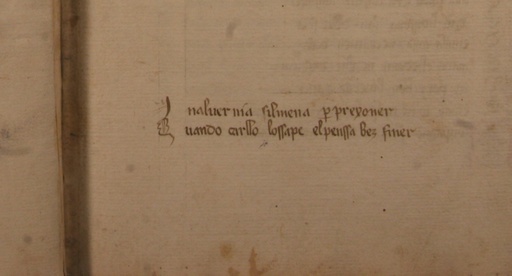 I naluernia silmena p preyoner
Quando carllo lossape el penssa bez finer